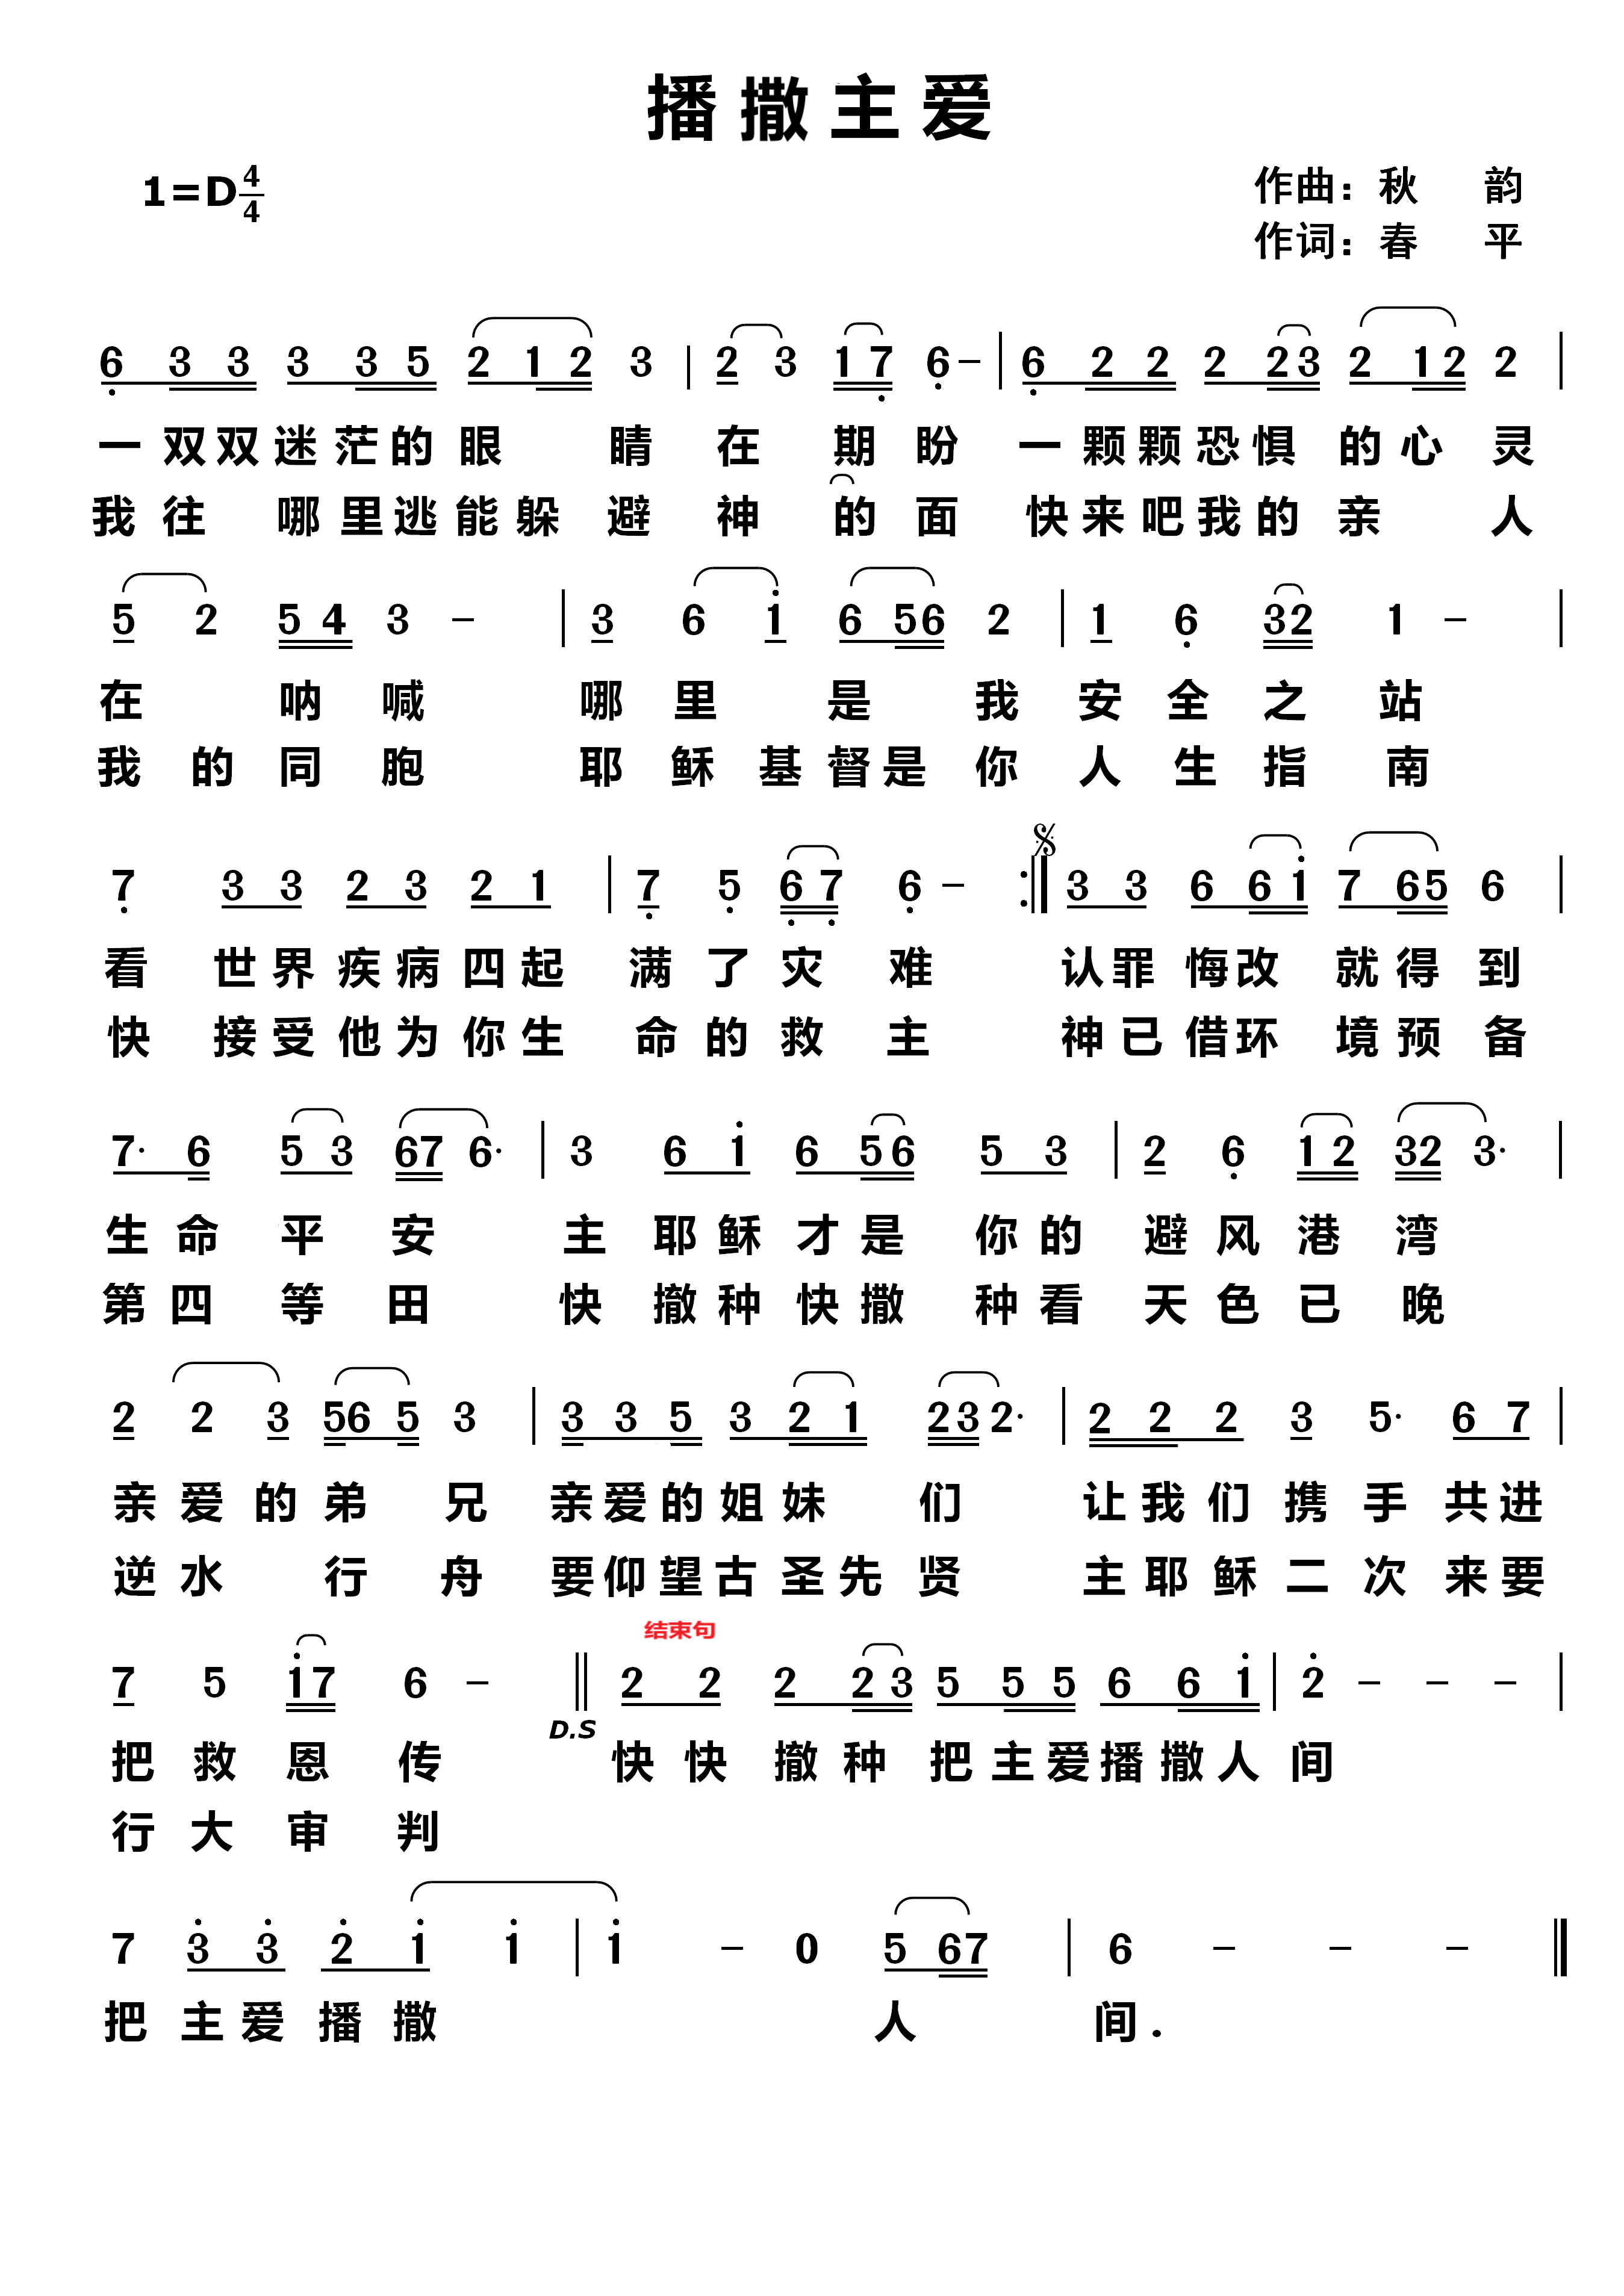 播撒主爱
1=D 4/4
作曲：秋 韵
作词：春 平
6 3 3 3 3 5 2 1 2 3 | 2 3 1 7 6 – | 6 2 2 2 2 3 2 1 2 2 |
一双双迷茫的眼 睛 在 期 盼 一颗颗恐惧 的心 灵
我往 哪里逃能躲 避 神 的 面 快来吧我的 亲 人
5 2 5 4 3 – | 3 6 1 6 5 6 2 | 1 6 3 2 1 – |
在 呐 喊 哪 里 是 我 安 全 之 站
我 的 同 胞 耶 稣 基 督是 你 人 生 指 南
7 3 3 2 3 2 1 | 7 5 6 7 6 – :| 3 3 6 6 1 7 6 5 6 |
看 世界 疾病 四起 满 了 灾 难 认罪 悔改 就得 到
快 接受 他为 你生 命 的 救 主 神已 借环 境预 备
7· 6 5 3 6 7 6· | 3 6 1 6 5 6 5 3 | 2 6 1 2 3 2 3· |
生 命 平 安 主 耶稣 才是 你的 避 风 港 湾
第 四 等 田 快 撤种 快撒 种看 天 色 已 晚
2 2 3 5 6 5 3 | 3 3 5 3 2 1 2 3 2· | 2 2 2 3 5· 6 7 |
亲 爱 的 弟 兄 亲爱的姐妹 们 让我们 携 手 共进
逆 水 行 舟 要仰望古圣先 贤 主耶稣 二 次 来要
结束句
7 5 1 7 6 – || 2 2 2 2 3 5 5 5 6 6 1 | 2 – – – |
D.S
把 救 恩 传 快 快 撤 种 把主爱播撒人 间
行 大 审 判
7 3 3 2 1 1 | 1 – 0 5 6 7 | 6 – – – ||
把 主爱 播撒 人 间 .